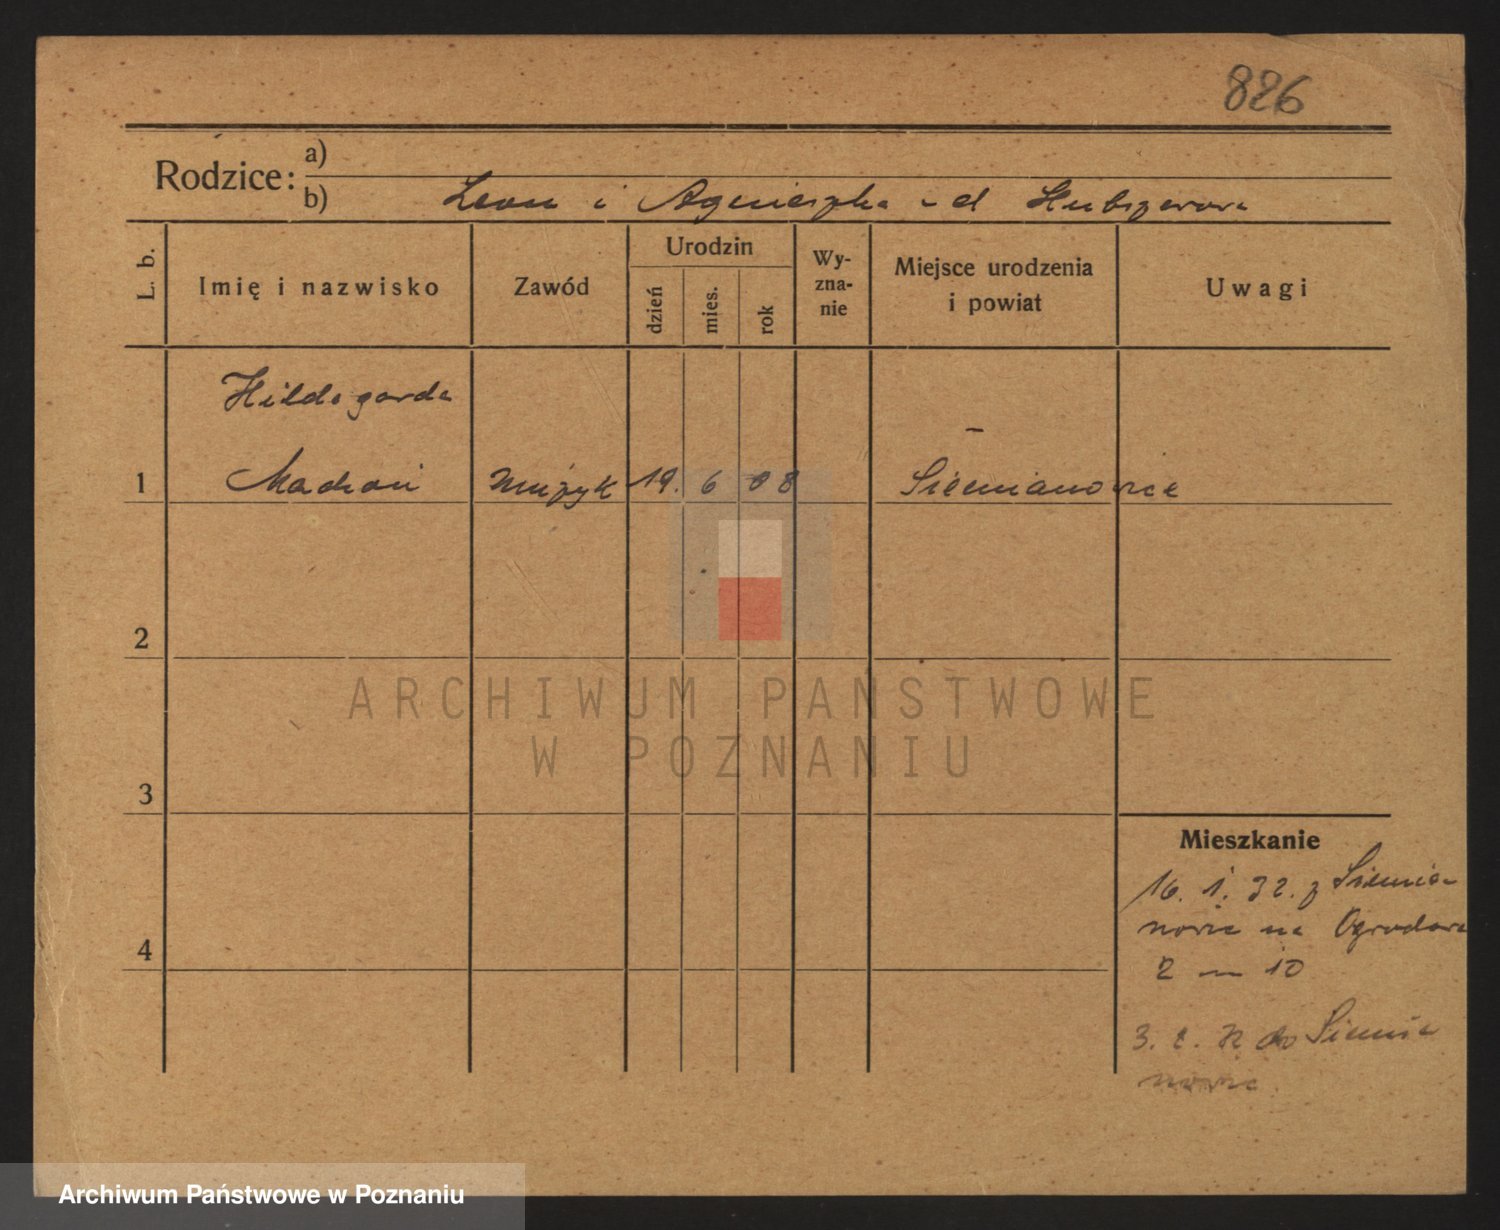 826
Rodzice:
a)
b) Leon i Agnieszka - d
L. b.
Imię i nazwisko
Zawód
Urodzin
dzień
mies.
rok
Wy-
zna-
nie
Miejsce urodzenia
i powiat
Uwagi
Hildegarda
1 muzyk 19. 6 08 Siemianowice
2
ARCHIWUM PAŃSTWOWE
W POZNANIU
3
Mieszkanie
16. 1. 32. z Siemia-
nowic na Ogrodowa
2 — 10
4
3. 2. do Siemia
nowic.
Archiwum Państwowe w Poznaniu